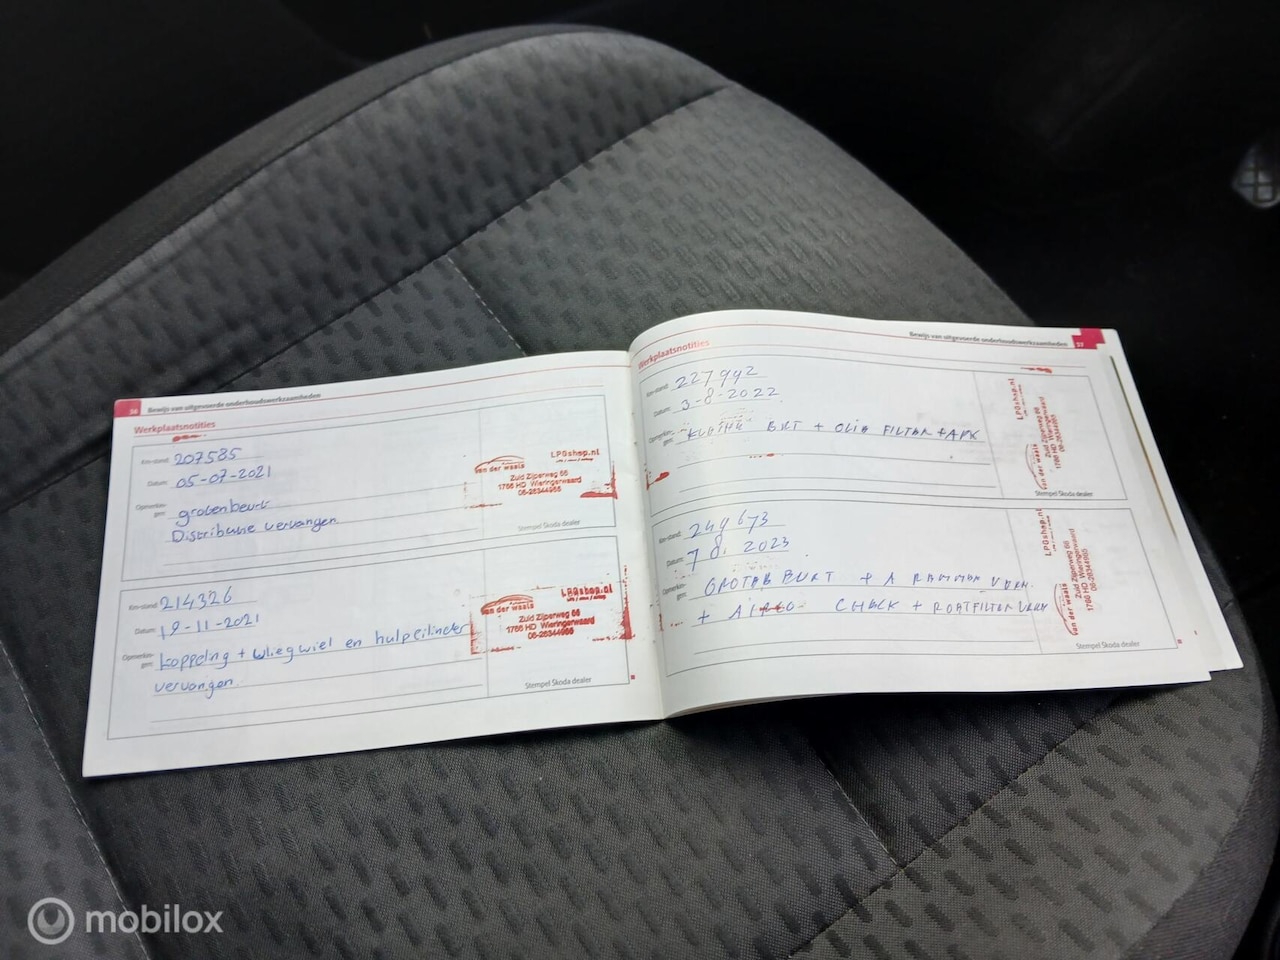 36 Bewijs van uitgevoerde onderhoudswerkzaamheden
Werkplaatsnotities
Km-stand: 207585
Datum: 05-07-2021
Opmerkin-
gen: grotenbeurt
Distributie vervangen
van der waals LPGshop.nl
Zuid Zijperweg 66
1766 HD Wieringerwaard
06-26344966
Stempel Škoda dealer
Km-stand: 214326
Datum: 19-11-2021
Opmerkin-
gen: koppeling + vliegwiel en hulpcilinder
vervangen.
van der waals LPGshop.nl
Zuid Zijperweg 66
1766 HD Wieringerwaard
06-26344966
Stempel Škoda dealer
Bewijs van uitgevoerde onderhoudswerkzaamheden 37
Werkplaatsnotities
Km-stand: 227992
Datum: 3-8-2022
Opmerkin-
gen: BRT + OLIE FILTER + APK
van der waals LPGshop.nl
Zuid Zijperweg 66
1766 HD Wieringerwaard
06-26344966
Stempel Škoda dealer
Km-stand: 249673
Datum: 7 8. 2023
Opmerkin-
gen: GROTE BEURT + A REMMEN VERN.
+ AIRCO CHECK + ROETFILTER VERN
van der waals LPGshop.nl
Zuid Zijperweg 66
1766 HD Wieringerwaard
06-26344966
Stempel Škoda dealer
mobilox